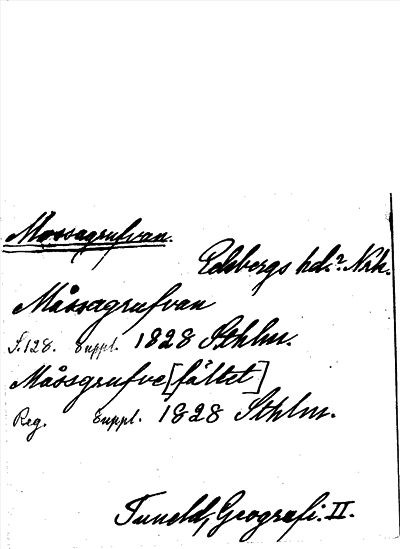 Mossagrufvan.
Edsbergs hd? Nrk.
Måssagrufvan
S. 128. Suppl. 1828 Sthlm.
Måssgrufve[fältet]
Reg. Suppl. 1828 Sthlm.
Tuneld, Geografi. II.